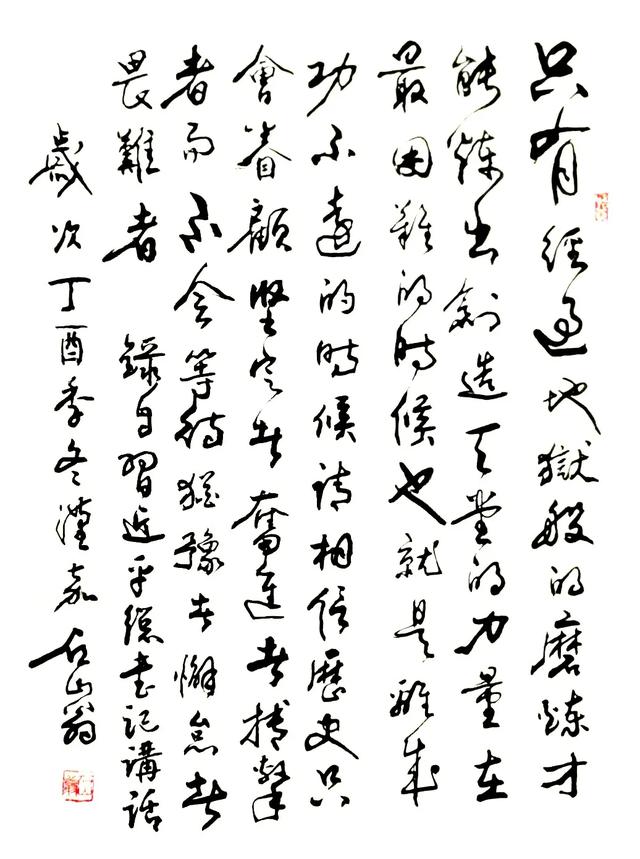 只有經過地獄般的磨煉才
能鍊出創造天堂的力量在
最困難的時候也就是離成
功不遠的時候請相信歷史只
會眷顧堅定者奮進者搏擊
者而不會等待猶豫者懈怠者
畏難者
錄自習近平總書記講話
歲次丁酉季冬漢嘉石山翁